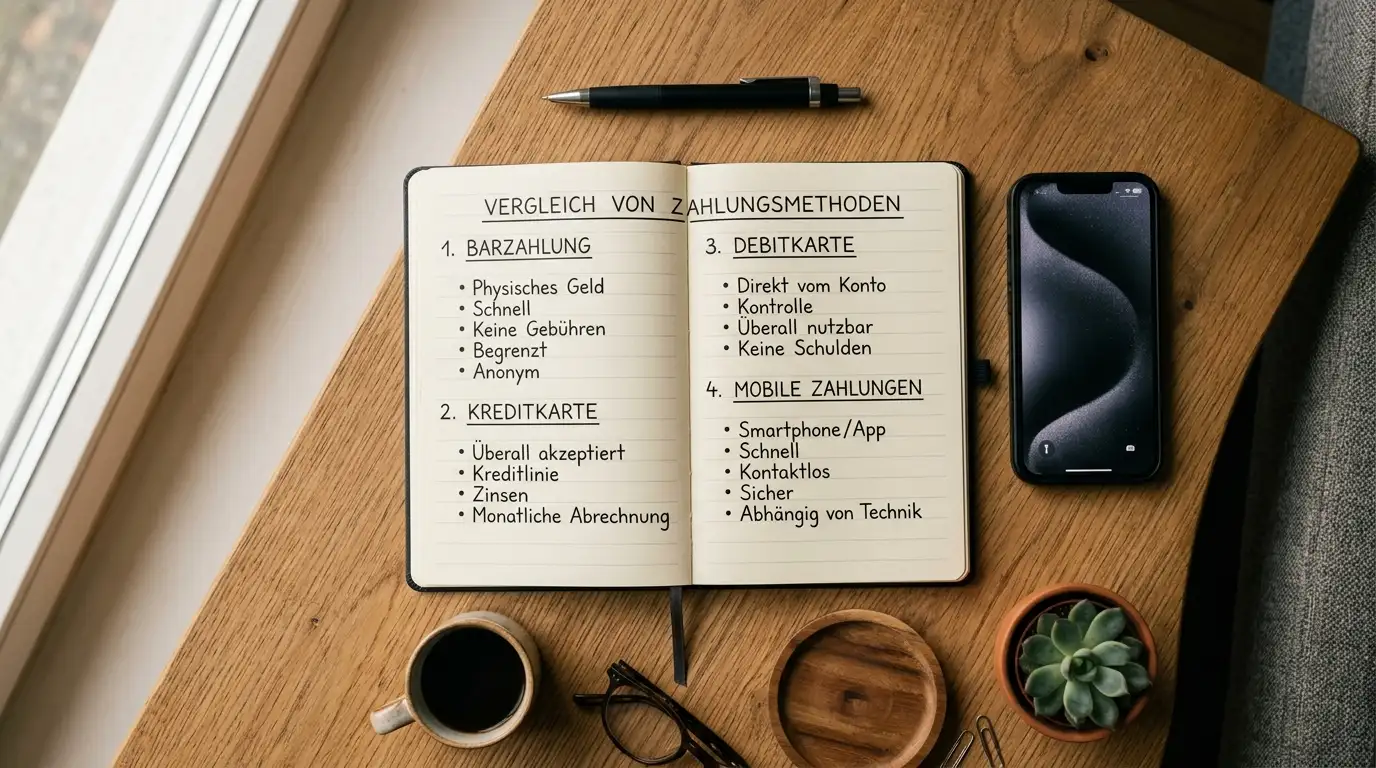 VERGLEICH VON ZAHLUNGSMETHODEN
1. BARZAHLUNG
• Physisches Geld
• Schnell
• Keine Gebühren
• Begrenzt
• Anonym
2. KREDITKARTE
• Überall akzeptiert
• Kreditlinie
• Zinsen
• Monatliche Abrechnung
3. DEBITKARTE
• Direkt vom Konto
• Kontrolle
• Überall nutzbar
• Keine Schulden
4. MOBILE ZAHLUNGEN
• Smartphone/App
• Schnell
• Kontaktlos
• Sicher
• Abhängig von Technik